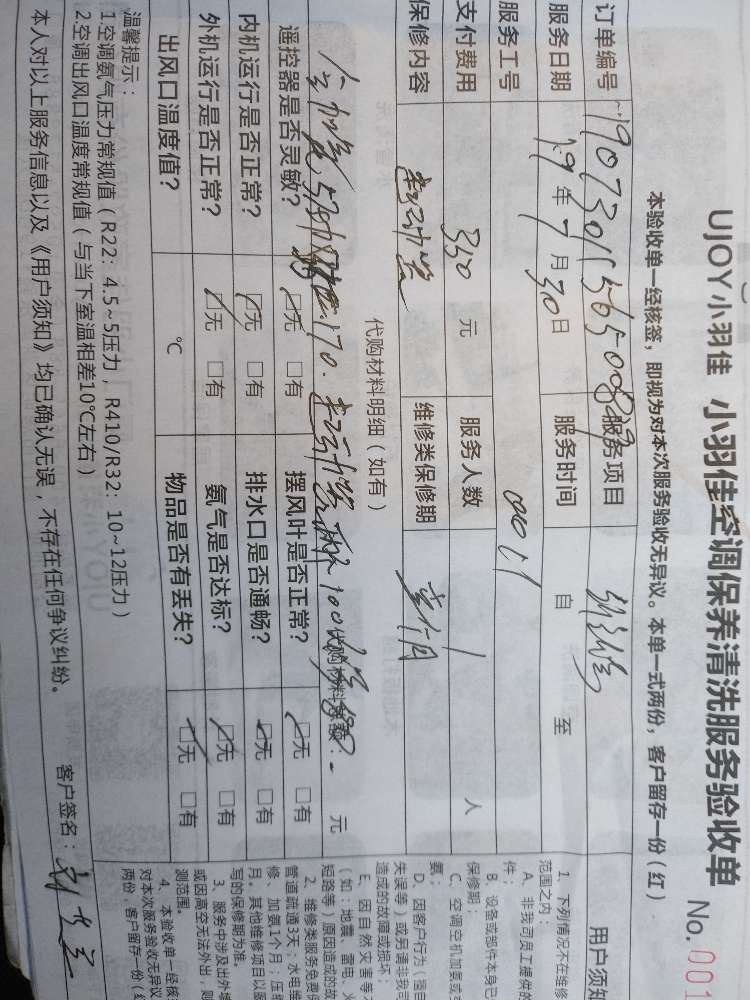 UJOY小羽佳 小羽佳空调保养清洗服务验收单
No. 001
本验收单一经核签，即视为对本次服务验收无异议。本单一式两份，客户留存一份（红）
订单编号 服务项目
服务日期 19年7月30日 服务时间 自 至
服务工号 0011
支付费用 350 元 服务人数 1 人
保修内容 维修类保修期
代购材料明细（如有）
代购材料金额： 元
遥控器是否灵敏？ ☑无 □有 摆风叶是否正常？ ☑无 □有
内机运行是否正常？ ☑无 □有 排水口是否通畅？ ☑无 □有
外机运行是否正常？ ☑无 □有 氨气是否达标？ ☑无 □有
出风口温度值？ ℃ 物品是否有丢失？ ☑无 □有
温馨提示：
1.空调氨气压力常规值（R22：4.5~5压力，R410/R32：10~12压力）
2.空调出风口温度常规值（与当下室温相差10℃左右）
本人对以上服务信息以及《用户须知》均已确认无误，不存在任何争议纠纷。
客户签名：
用户须知
1、下列情况不在维修
范围之内：
A、非我司员工提供的
件；
B、设备或部件本身已
保修期；
C、空调空机加氨或
氨；
D、因客户行为（擅自
失误等）或另请非我司
造成的故障或损坏；
E、因自然灾害等不
（如：地震、雷电、火
短路等）原因造成的故
2、维修类服务免费保
管道疏通3天；水电维
修、加氨1个月；压缩
月。其他维修项目以医
写的保修期为准。
3、服务中涉及出外墙
或因高空无法外出，则
测范围。
4、本验收单一经核
对本次服务验收无异议
两份，客户留存一份（红